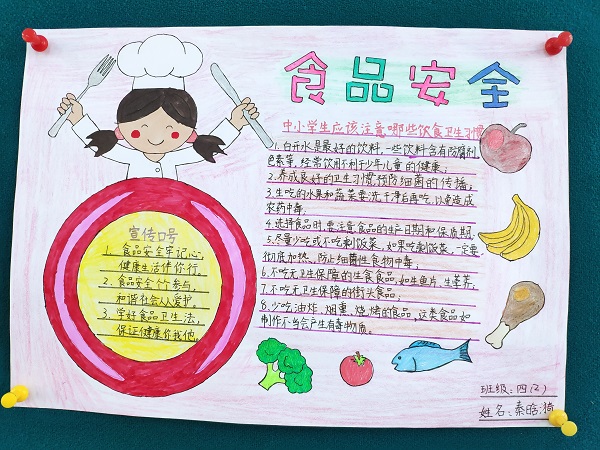 食品安全
中小学生应该注意哪些饮食卫生习惯
1.白开水是最好的饮料,一些饮料含有防腐剂,
色素等,经常饮用不利于少年儿童的健康;
2.养成良好的卫生习惯,预防细菌的传播;
3.生吃的水果和蔬菜要洗干净后再吃,以免造成
农药中毒;
4.选择食品时,要注意食品的生产日期和保质期;
5.尽量少吃或不吃剩饭菜,如果吃剩饭菜,一定要
彻底加热、防止细菌性食物中毒;
6.不吃无卫生保障的生食食品,如生鱼片、生荸荠;
7.不吃无卫生保障的街头食品;
8.少吃油炸、烟熏、烧烤的食品,这类食品如
制作不当会产生有毒物质。
宣传口号
1、食品安全牢记心,
健康生活伴你行。
2、食品安全个个参与,
和谐社会人人爱护。
3、学好食品卫生法,
保证健康你我他。
班级:四(2)
姓名:秦晗